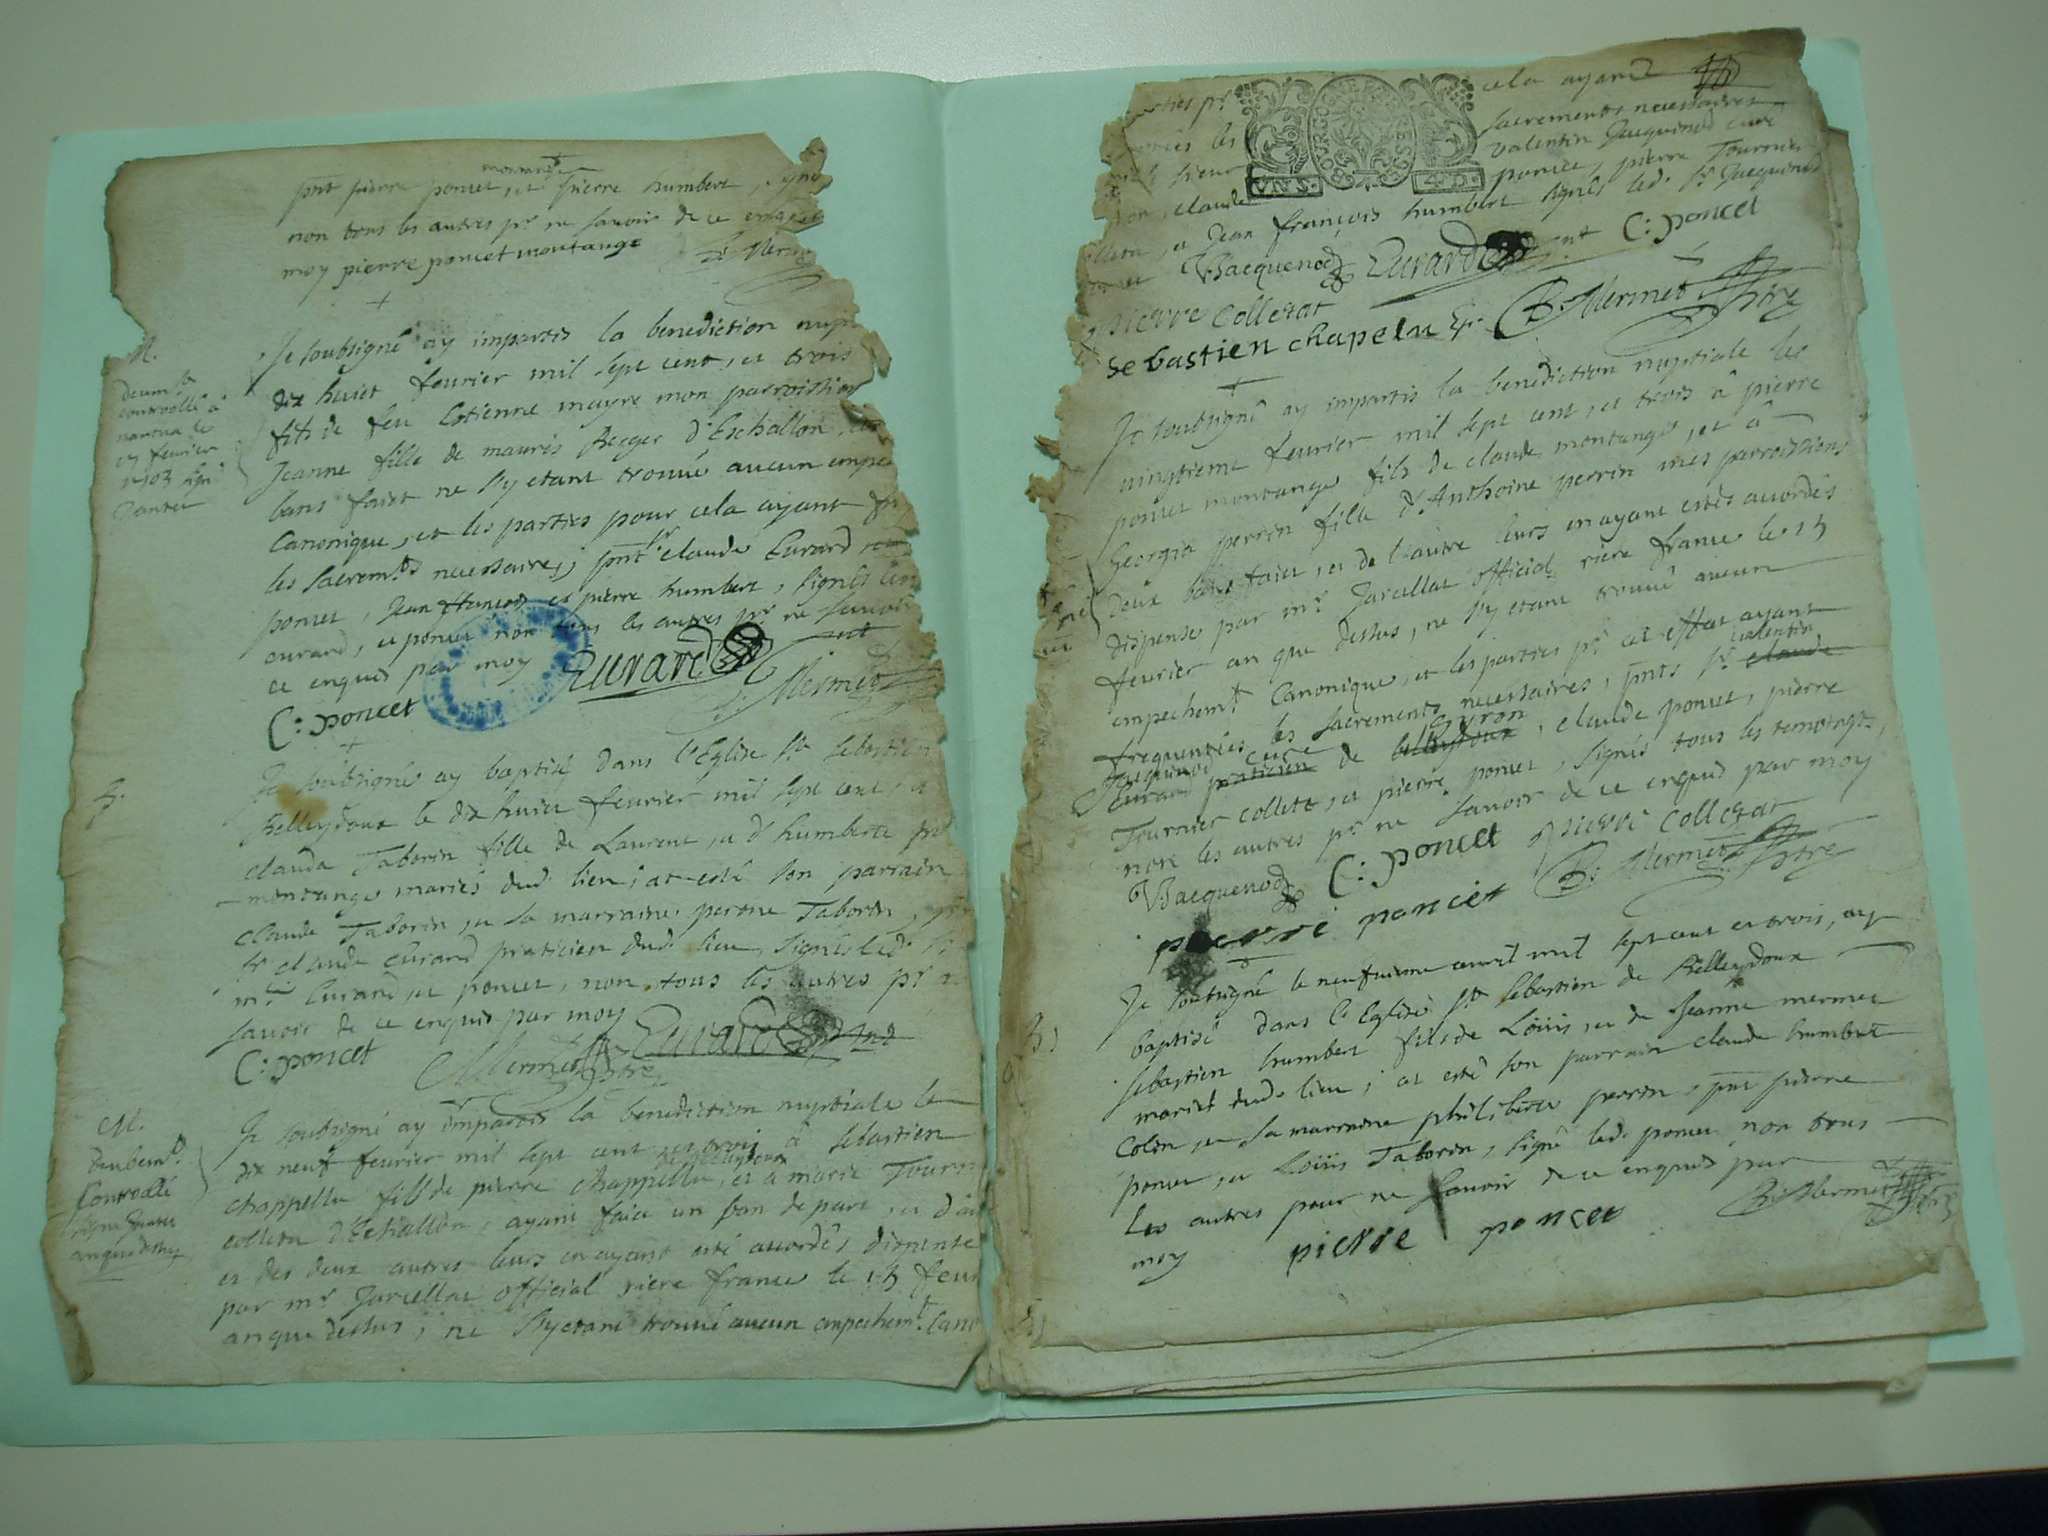 montange
pnt pierre poncet, et pierre humbert, signé
non tous les autres pr ne savoir de ce enquis
moy pierre poncet montange
M.
controollé a
nantua le
fevrier
1703
Je soubsigné ay impartis la benediction nup
dix huict fevrier mil sept cent, et trois
fils de feu Estienne mayre mon parroissien
Jeanne fille de mauris Berger d'Eschallon,
bans faict ne s'y etant trouvé aucun empe
Canonique, et les parties pour cela ayant fr
les sacremts necessaires; pnt sr claude Eurard
poncet, Jean francois et pierre humbert, signés
eurard, et poncet non tous les autres pr ne savoir
ce enquis par moy Eurard
B. Mermet
C: poncet
B.
Je soubsigné ay baptisé dans l'Eglise St Sebastien
Belleydoux le dix huict fevrier mil sept cent, et
clauda Taborin fille de Laurent, et d'humberte
montange mariés dud. lieu; at esté son parrain
claude Taborin, et sa marraine perone Taborin,
sr claude eurard praticien dud. lieu, signés led. sr
Eurard, et poncet, non tous les autres pr
savoir de ce enquis par moy Eurard
C: poncet B. Mermet ptre
M.
Controllé
an que dessus
Je soubsigné ay impartis la benediction nuptiale le
dix neuf fevrier mil sept cent et trois à sebastien
de belleydoux
chappellu fils de pierre chappellu, et a marie Tourn
colletu d'Echallon, ayant faict un ban de part, et d'au
et des deux autres leurs en ayant esté accordés dispense
par mr Jarcellat official riere france le 15 fevr
an que dessus; ne s'y etant trouvé aucun empechemt. Cano
parties pr cela ayant
BOURGOGNE BRESSE
les sacrements necessaires
sieur valentin Jacquenod curé
claude poncet, pierre Tournier
et Jean françois humbert signés led. sr Jacquenod
VJacquenod Eurard C: poncet
pierre Colletat
sebastien chapelu B: Mermet ptre
Je soubsigné ay impartis la benediction nuptiale le
vingtieme fevrier mil sept cent, et trois à pierre
poncet montange fils de claude montange, et à
Georgia perrin fille d'Anthoine perrin mes parroissiens
deux bans faict, et de l'autre leurs en ayant estés accordés
dispense par mr. Jarcellat official riere france le 15
fevrier an que dessus, ne s'y etant trouvé aucun
empechemt. Canonique, et les parties pr cet effet ayant
valentin
frequentées les sacrements necessaires, pnts sr claude
Jacquenod curé
Eurard praticien de belleydoux, claude poncet, pierre
Tournier collete, et pierre poncet, signés tous les temoings,
non les autres pr ne savoir de ce enquis par moy
VJacquenod C: poncet pierre Colletat
pierre poncet B: Mermet ptre
B
Je soubsigné le neufvieme avril mil sept cent et trois, ay
baptisé dans l'Eglise St Sebastien de Belleydoux
sebastien humbert fils de Loüis, et de Jeanne mermet
mariés dud. lieu; at esté son parrain claude humbert
Colin, et sa marraine philiberte perrin, pnt pierre
poncet, et Loüis Taborin, signé led. poncet non tous
les autres pour ne savoir de ce enquis par
moy pierre poncet B: Mermet ptre